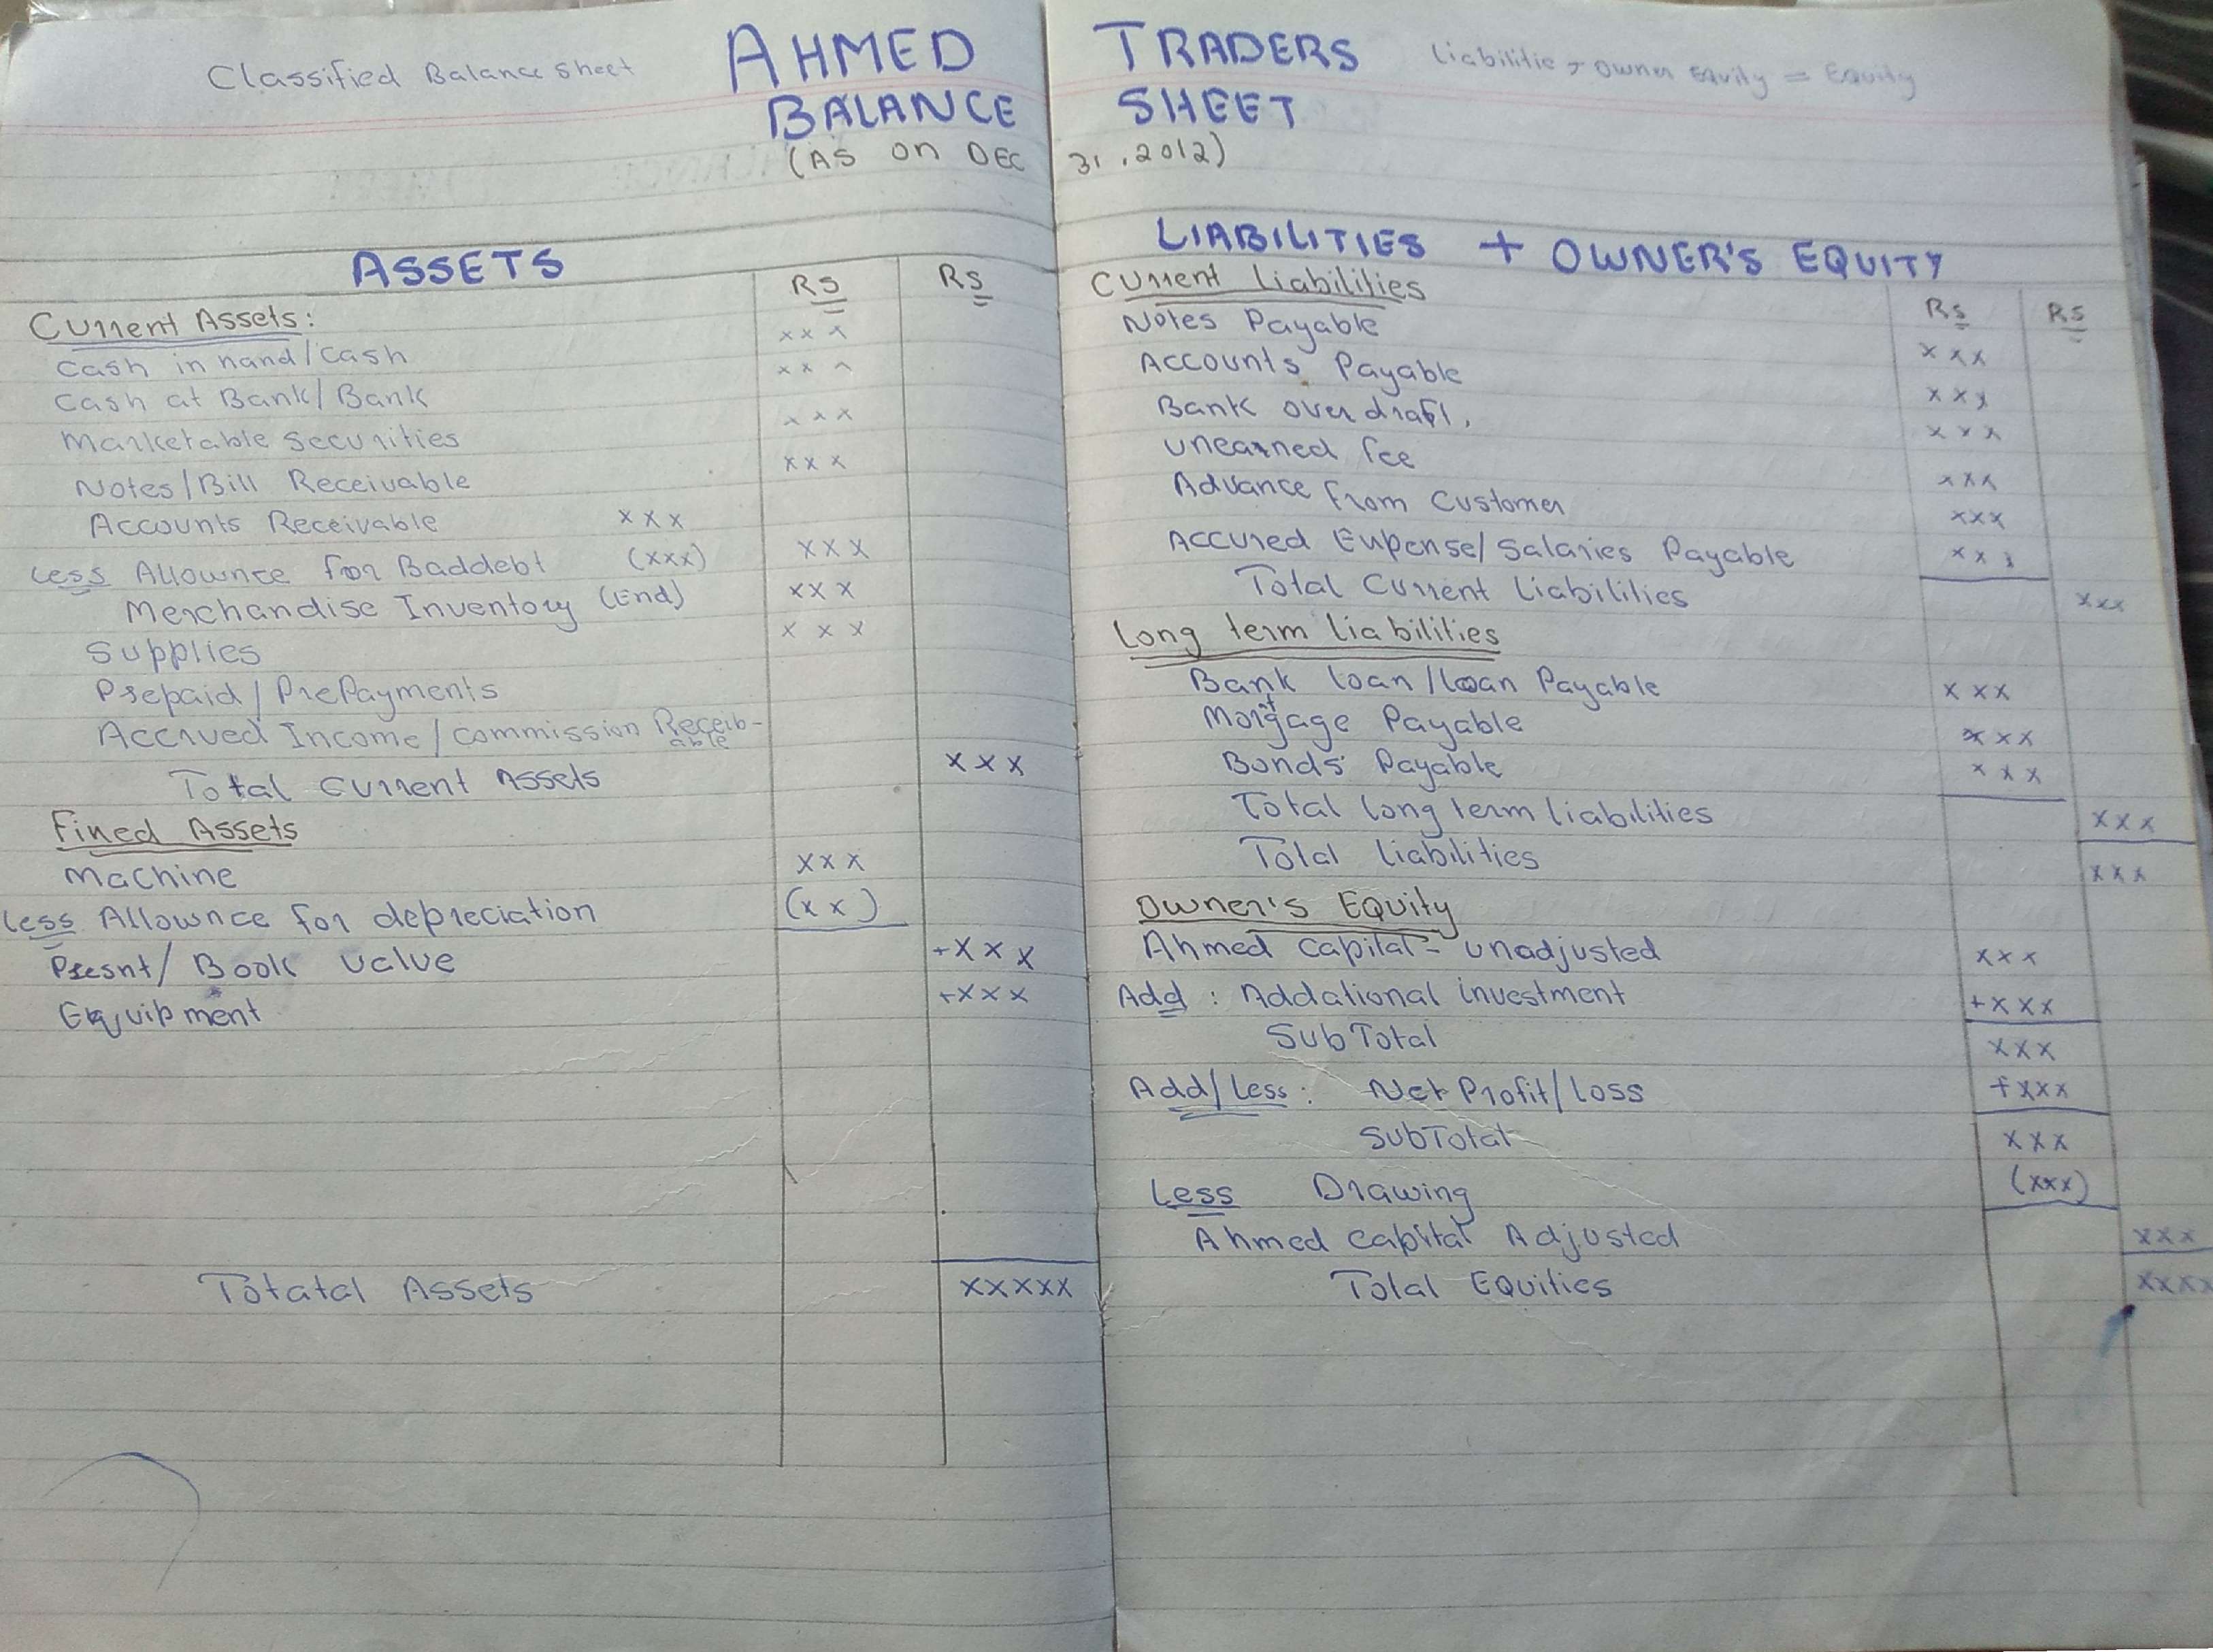 Classified Balance Sheet
AHMED TRADERS
Liabilitie + Owner Equity = Equity
BALANCE SHEET
(AS on DEC 31, 2012)
ASSETS
Rs Rs
Current Assets:
Cash in hand/Cash xxx
Cash at Bank/Bank xxx
Marketable Securities xxx
Notes/Bill Receivable xxx
Accounts Receivable xxx
Less Allownce for Baddebt (xxx) xxx
Merchandise Inventory (End) xxx
Supplies xxx
Prepaid/PrePayments
Accrued Income/commission Receib-
able
Total Current Assets xxx
Fined Assets
Machine xxx
Less Allownce for depreciation (xx)
Presnt/Book Value +xxx
Equipment +xxx
Totatal Assets xxxxx
LIABILITIES + OWNER'S EQUITY
Rs Rs
Current Liabilities
Notes Payable xxx
Accounts Payable xxx
Bank over draft, xxx
unearned fee xxx
Advance from Customer xxx
Accured Expense/Salaries Payable xxx
Total Current Liabilities xxx
Long term liabilities
Bank loan/loan Payable xxx
Mortgage Payable xxx
Bonds Payable xxx
Total long term liabilities xxx
Total liabilities xxx
Owner's Equity
Ahmed Capital - unadjusted xxx
Add: Addational investment +xxx
SubTotal xxx
Add/Less: Net Profit/Loss +xxx
SubTotal xxx
Less Drawing (xxx)
Ahmed Capital Adjusted xxx
Total Equities xxxx